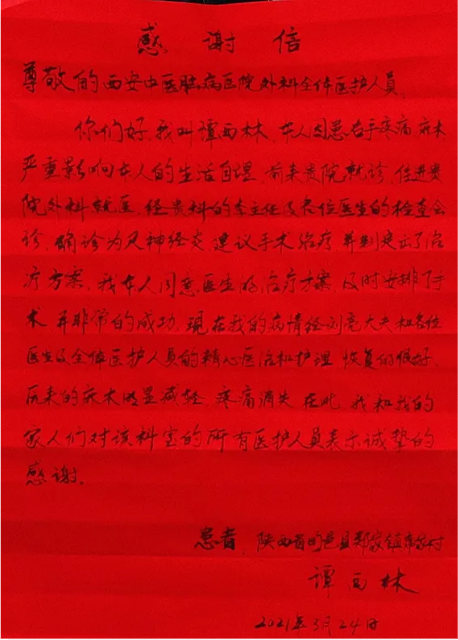 感谢信
尊敬的西安中医脑病医院外科全体医护人员
你们好,我叫谭西林,本人因患右手疼痛、麻木
严重影响本人的生活自理,前来贵院就诊,住进贵
院外科就医,经贵科的专主任及各位医生的检查会
诊,确诊为尺神经炎,建议手术治疗,并制定出了治
疗方案,我本人同意医生的治疗方案,及时安排了手
术,并非常的成功,现在我的病情经刘亮大夫和各位
医生及全体医护人员的精心医治和护理,恢复的很好,
原来的麻木明显减轻,疼痛消失,在此,我和我的
家人们对该科室的所有医护人员表示诚挚的
感谢。
患者:陕西省
谭西林
2021年5月24日